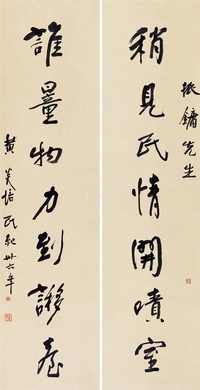 振鏞先生
稍見民情開嘖室
誰量物力到謻臺
黄炎培 民紀卅六年